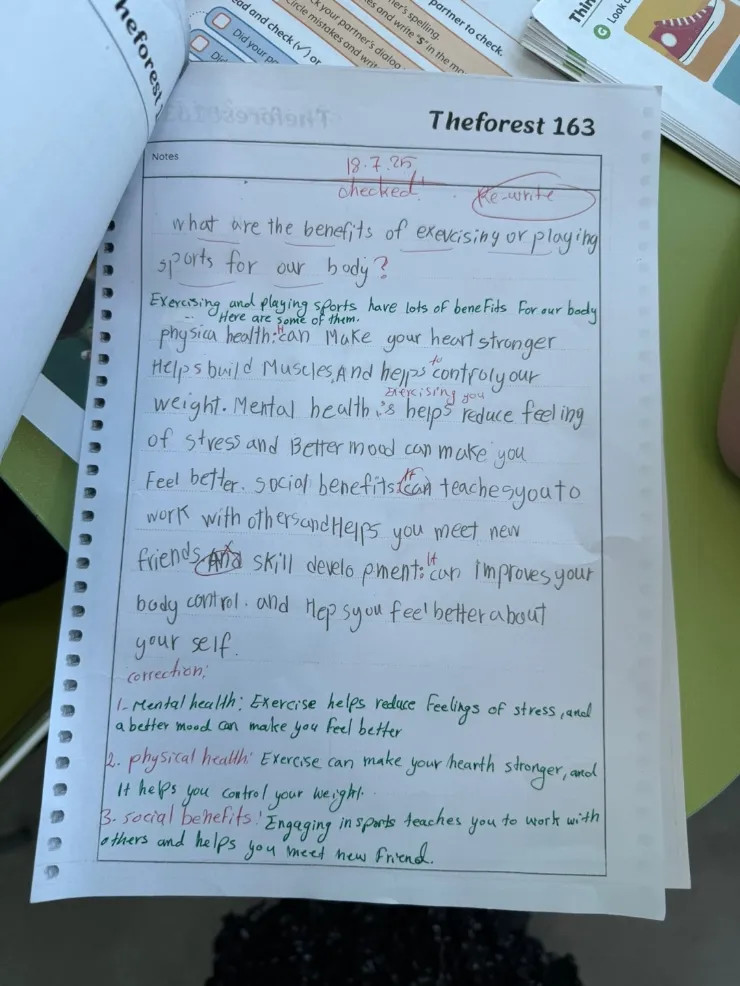 heforest
ead and check (✓) or
Did your pa
Did
ck your partner's dialog
circle mistakes and write
er's spelling.
es and write "S" in the ma
partner to check.
Thin
G Look a
Theforest 163
Notes
18.7.25
checked.
Re-write
what are the benefits of exercising or playing
sports for our body?
Exercising and playing sports have lots of benefits for our body
Here are some of them.
physica health: It can Make your heart stronger
Helps build Muscles, And helps to control your
weight. Mental health,'s Exercising you helps reduce feeling
of stress and Better mood can make you
Feel better. social benefits: It can teaches you to
work with others and Helps you meet new
friends. And skill develo pment: It can improves your
body control. and Heps you feel better about
your self.
correction:
1- Mental health: Exercise helps reduce feelings of stress, and
a better mood can make you feel better
2. physical health: Exercise can make your hearth stronger, and
It helps you control your weight.
3- social benefits: Engaging in sports teaches you to work with
others and helps you meet new friend.